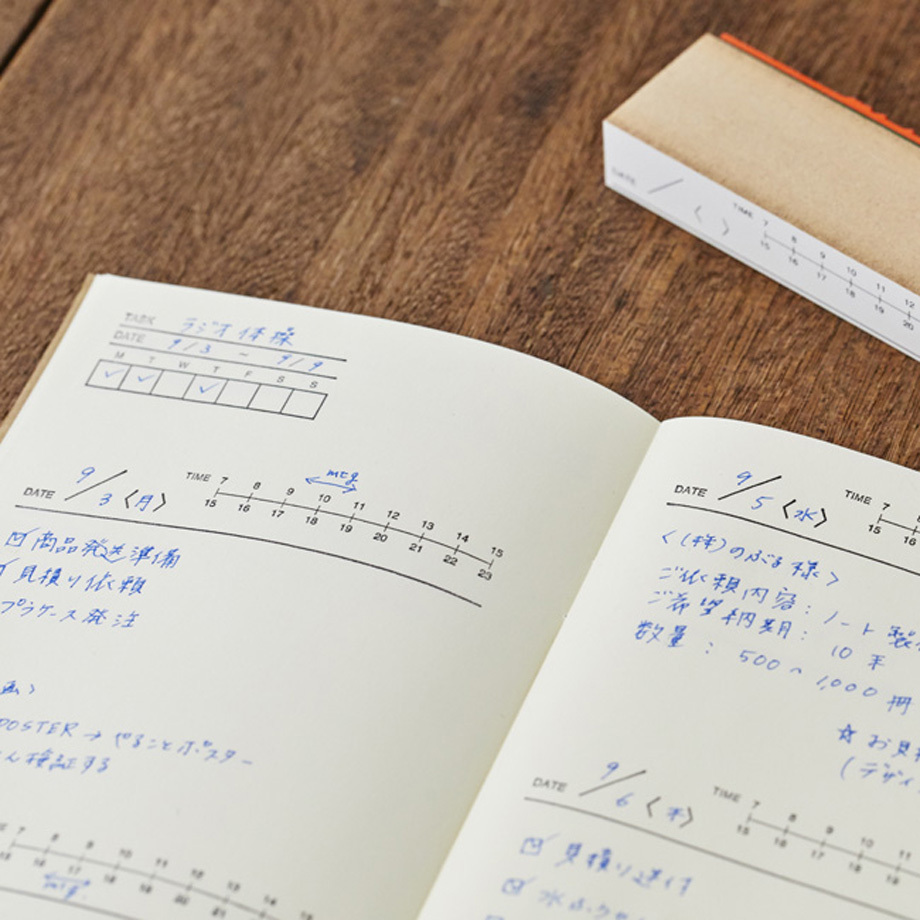 TASK ラジオ体操
DATE 9/3 ~ 9/9
M T W T F S S
DATE 9/3 〈月〉 TIME 7 8 9 10 11 12 13 14 15
mtg
15 16 17 18 19 20 21 22 23
商品発送準備
見積り依頼
プラケース発注
POSTER → やることポスター
検証する
7 8 9 10 11 12 13 14 15
15 16 17 18 19 20 21
mtg
DATE 9/5 〈水〉 TIME 7 8
15 16
〈(株)のぶる様〉
ご依頼内容:ノート製
ご希望納期:10末
数量:500~1,000冊
☆お見
(デザイ
DATE 9/6 〈木〉 TIME 7 8 9 10 11
15 16 17 18 19
見積り送付
DATE / 〈 〉 TIME 7 8 9 10 11 12
15 16 17 18 19 20